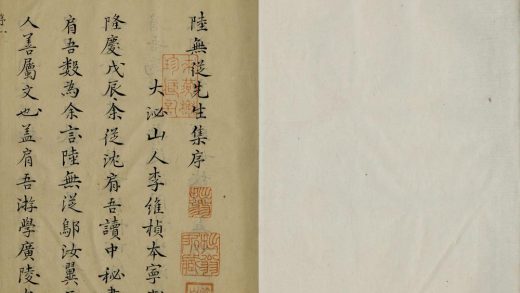 陸無從先生集序
大泌山人李維楨本寧
隆慶戊辰余從沈肩吾讀中秘書
肩吾數為余言陸無從鄔汝翼
人善屬文也蓋肩吾游學廣陵